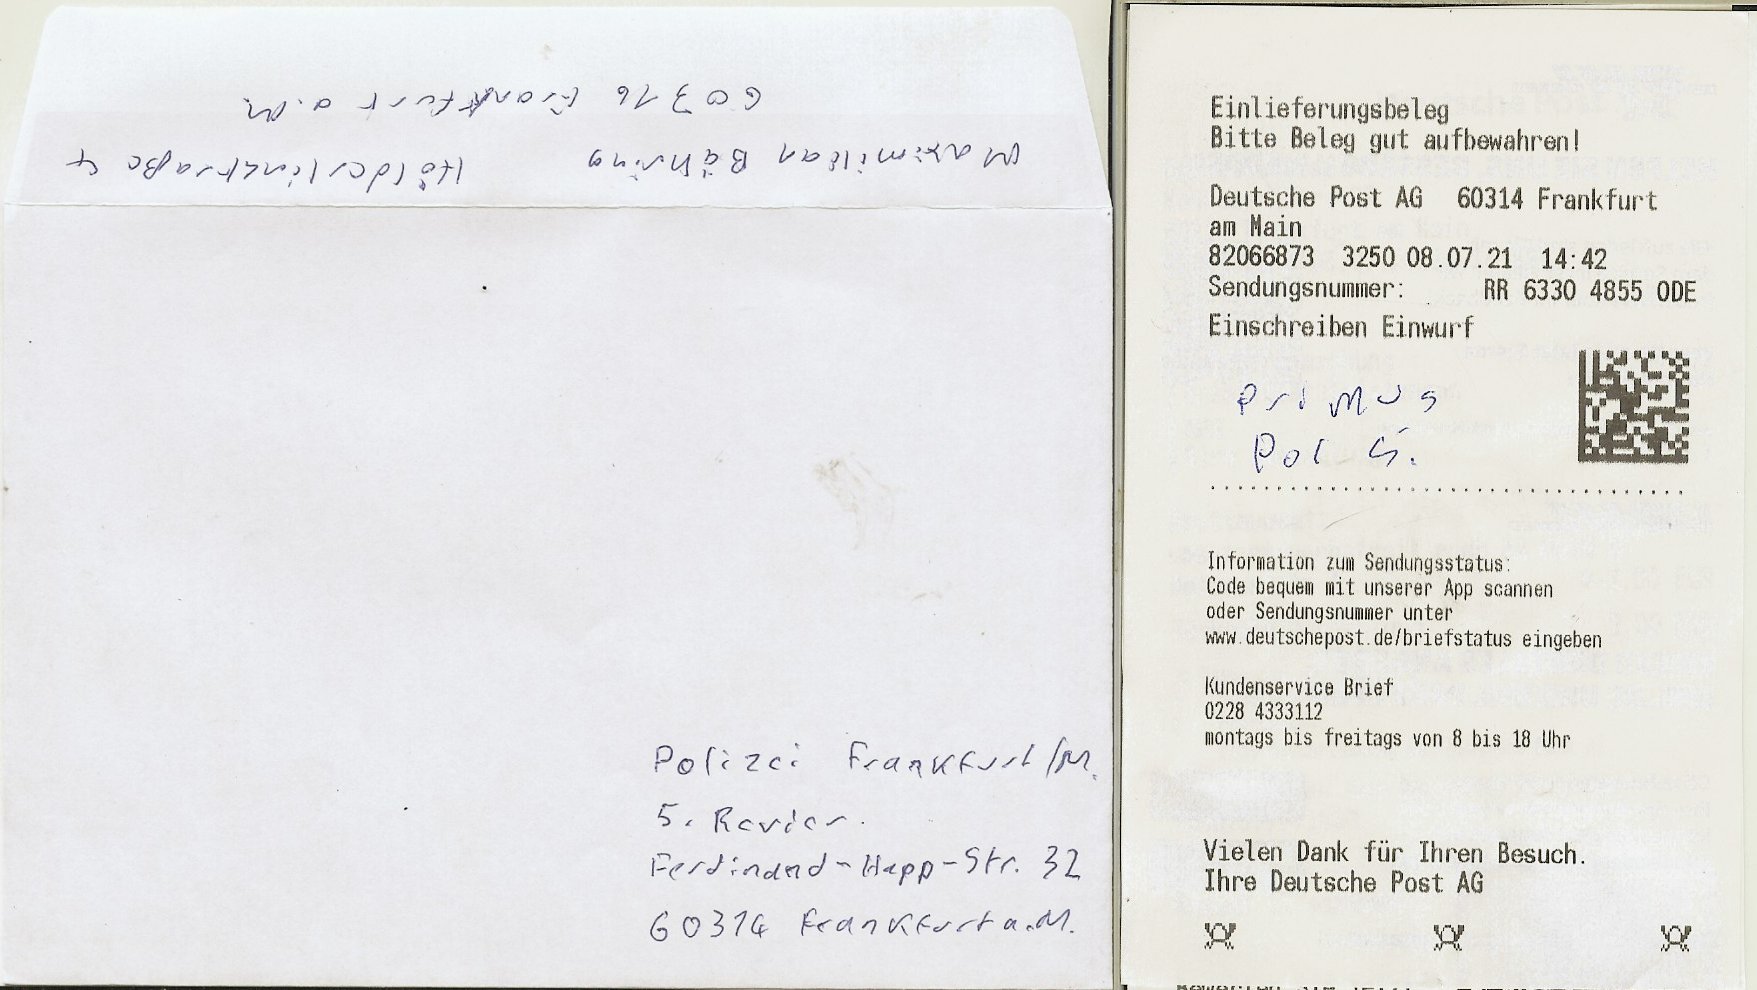 Maximilian Bähring Hölderlinstraße 4
60316 Frankfurt a.M.
Polizei Frankfurt/M.
5. Revier.
Ferdinand-Happ-Str. 32
60314 Frankfurt a.M.
Einlieferungsbeleg
Bitte Beleg gut aufbewahren!
Deutsche Post AG 60314 Frankfurt
am Main
82066873 3250 08.07.21 14:42
Sendungsnummer: RR 6330 4855 0DE
Einschreiben Einwurf
Primus
Pol 5.
Information zum Sendungsstatus:
Code bequem mit unserer App scannen
oder Sendungsnummer unter
www.deutschepost.de/briefstatus eingeben
Kundenservice Brief
0228 4333112
montags bis freitags von 8 bis 18 Uhr
Vielen Dank für Ihren Besuch.
Ihre Deutsche Post AG